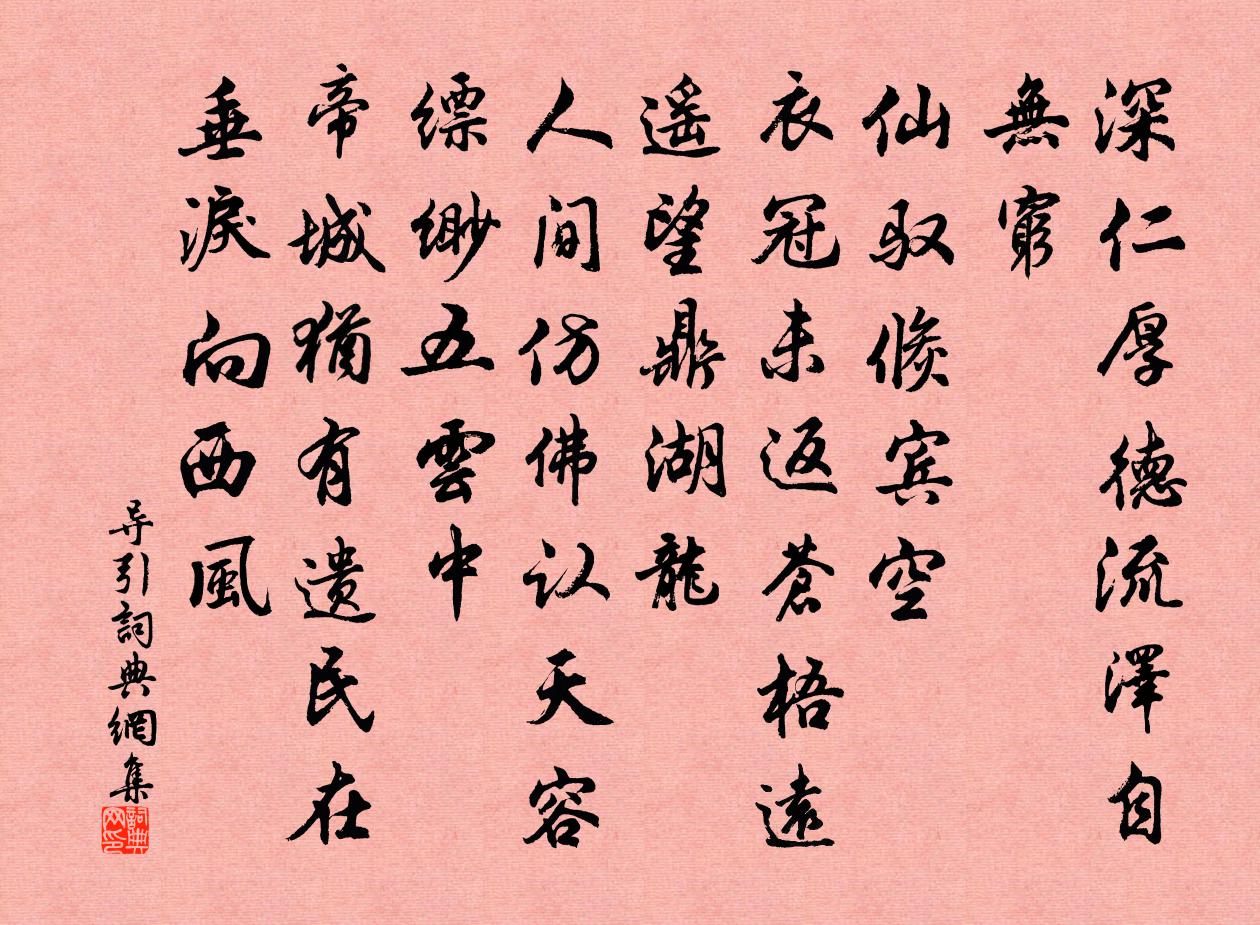 深仁厚德流澤自
無窮
仙驭倏宾空
衣冠未返蒼梧遠
遥望鼎湖龍
人间仿佛认天容
缥缈五雲中
帝城猶有遗民在
垂淚向西風
导引詞典網集
詞典网印